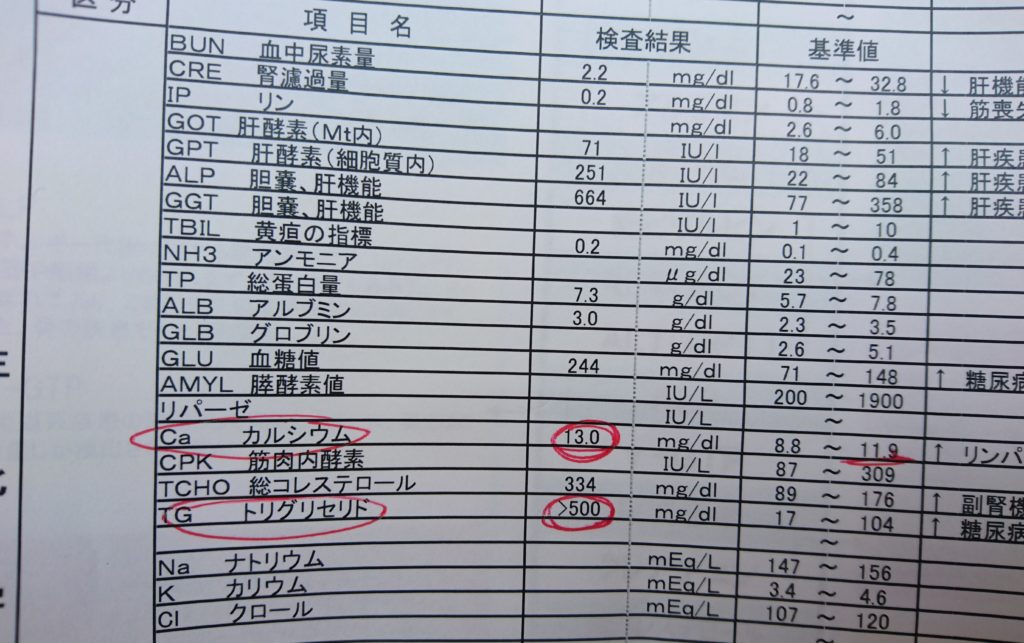 区分 項目名 検査結果 基準値
～
BUN 血中尿素量 2.2 mg/dl 17.6 ～ 32.8 ↓ 肝機能
CRE 腎濾過量 0.2 mg/dl 0.8 ～ 1.8 ↓ 筋喪失
IP リン mg/dl 2.6 ～ 6.0
GOT 肝酵素(Mt内) 71 IU/l 18 ～ 51 ↑ 肝疾患
GPT 肝酵素(細胞質内) 251 IU/l 22 ～ 84 ↑ 肝疾患
ALP 胆嚢、肝機能 664 IU/l 77 ～ 358 ↑ 肝疾患
GGT 胆嚢、肝機能 IU/l 1 ～ 10
TBIL 黄疸の指標 0.2 mg/dl 0.1 ～ 0.4
NH3 アンモニア μg/dl 23 ～ 78
TP 総蛋白量 7.3 g/dl 5.7 ～ 7.8
ALB アルブミン 3.0 g/dl 2.3 ～ 3.5
GLB グロブリン g/dl 2.6 ～ 5.1
GLU 血糖値 244 mg/dl 71 ～ 148 ↑ 糖尿病
AMYL 膵酵素値 IU/L 200 ～ 1900
リパーゼ IU/L ～
Ca カルシウム 13.0 mg/dl 8.8 ～ 11.9 ↑ リンパ
CPK 筋肉内酵素 IU/L 87 ～ 309
TCHO 総コレステロール 334 mg/dl 89 ～ 176 ↑ 副腎機
TG トリグリセリド >500 mg/dl 17 ～ 104 ↑ 糖尿病
～
Na ナトリウム mEq/L 147 ～ 156
K カリウム mEq/L 3.4 ～ 4.6
Cl クロール mEq/L 107 ～ 120
～